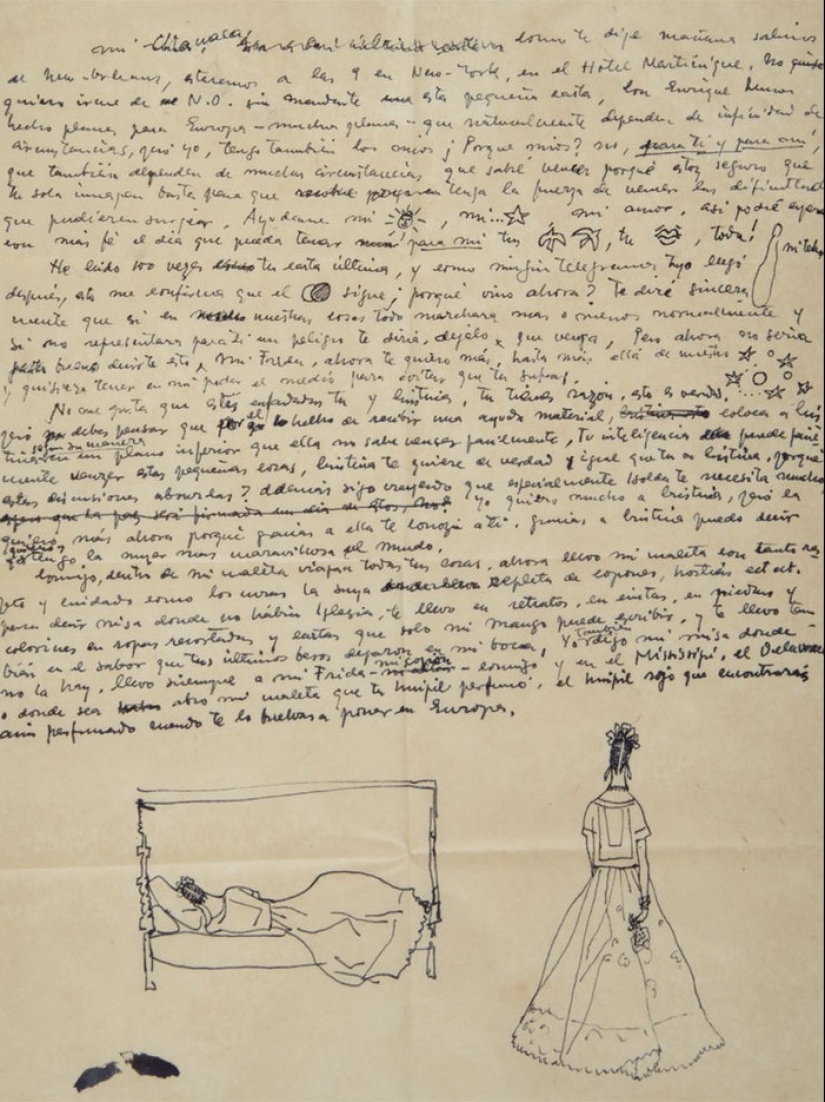 mi Chiquala como te dije mañana salimos
de New-Orleans, estaremos a las 9 en New-York, en el Hotel Martinique. No
quiero irme de N.O. sin mandarte esta pequeña carta, con Enrique hemos
hecho planes para Europa - muchos planes - que naturalmente dependen de infinidad de
circunstancias, pero yo, tengo también los mios ¿ Porque mios? no, para ti y para mi,
que también dependen de muchas circunstancias que sabré vencer porqué estoy seguro que
tu sola imagen basta para que tenga la fuerza de vencer las dificultades
que pudieran surgir. Ayudame mi , mi... , mi amor, asi podré
con más fé el dia que pueda tener para mi tus , tu , toda!
He leido 100 vezes tu carta última, y como ningún telegrama tuyo llegó
después, esto me confirma que el sigue ¿ porqué vino ahora? Te diré sincera
mente que si en nuestras cosas todo marchara mas o menos normalmente y
si no representara para ti un peligro te diria, dejálo que venga, Pero ahora no seria
bueno decirte esto, mi Frida, ahora te quiero más, hasta más allá de
y quisiera tener en mi poder el medio para evitar que tu sufras.
No me gusta que estés enfadadas tu y Cristina, tu tienes razón, esto es verdad,
pero debes pensar que el hecho de recibir una ayuda material, coloca a Cris
tina en un plano inferior que ella no sabe vencer facilmente, tu inteligencia puede facil
a su manera
mente venzer estas pequeñas cosas, Cristina te quiere de verdad y igual que tu a Cristina, porqué
estas discusiones absurdas? además sigo creyendo que especialmente Isolda te necesita mucho
Yo quiero mucho a Cristina, pero la
quiero más ahora porqué gracias a ella te conozi a ti. gracias a Cristina puedo decir
tengo la mujer mas maravillosa del mundo.
Conmigo, dentro de mi maleta viajan todas tus cosas, ahora llevo mi maleta con tanto res
peto y cuidado como los curas la suya repleta de copones, hostias ect ect.
para decir misa donde no habia Iglesia, te llevo en retratos, en cintas, en piedras y
colorines en ropas recortadas y cartas que solo mi mango puede escribir, y te llevo tam
bién en el sabor que tus últimos besos dejaron en mi boca, Yo también digo mi misa donde
no la hay, llevo siempre a mi Frida - mi copón - conmigo y en el Mississipi, el Delaware
o donde sea abro mi maleta que tu huipil perfumó, el huipil rojo que encontrarás
aún perfumado cuando te lo vuelvas a poner en Europa.